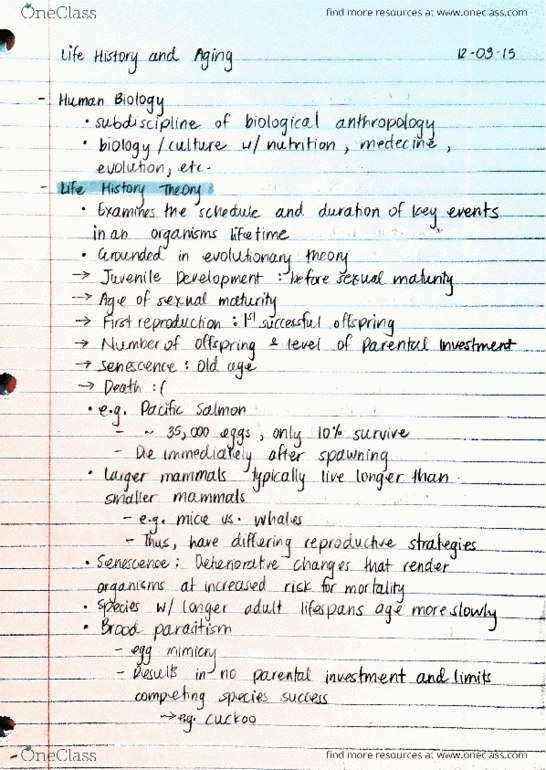 OneClass find more resources at www.oneclass.com
Life History and Aging 12-03-15
- Human Biology
• subdiscipline of biological anthropology
• biology/culture w/ nutrition, medecine,
evolution, etc.
- Life History Theory
• Examines the schedule and duration of key events
in an organisms lifetime
• Grounded in evolutionary theory
→ Juvenile Development : before sexual maturity
→ Age of sexual maturity
→ First reproduction : 1st successful offspring
→ Number of offspring & level of Parental Investment
→ senescence : old age
→ Death :(
• e.g. Pacific Salmon
- ~ 35,000 eggs, only 10% survive
- Die immediately after spawning
• larger mammals typically live longer than
smaller mammals
- e.g. mice vs. whales
- Thus, have differing reproductive strategies
• Senescence : Deteriorative changes that render
organisms at increased risk for mortality
• Species w/ longer adult lifespans age more slowly
• Brood parasitism
- egg mimicry
- Results in no parental investment and limits
competing species success
→ eg. cuckoo
OneClass find more resources at www.oneclass.com